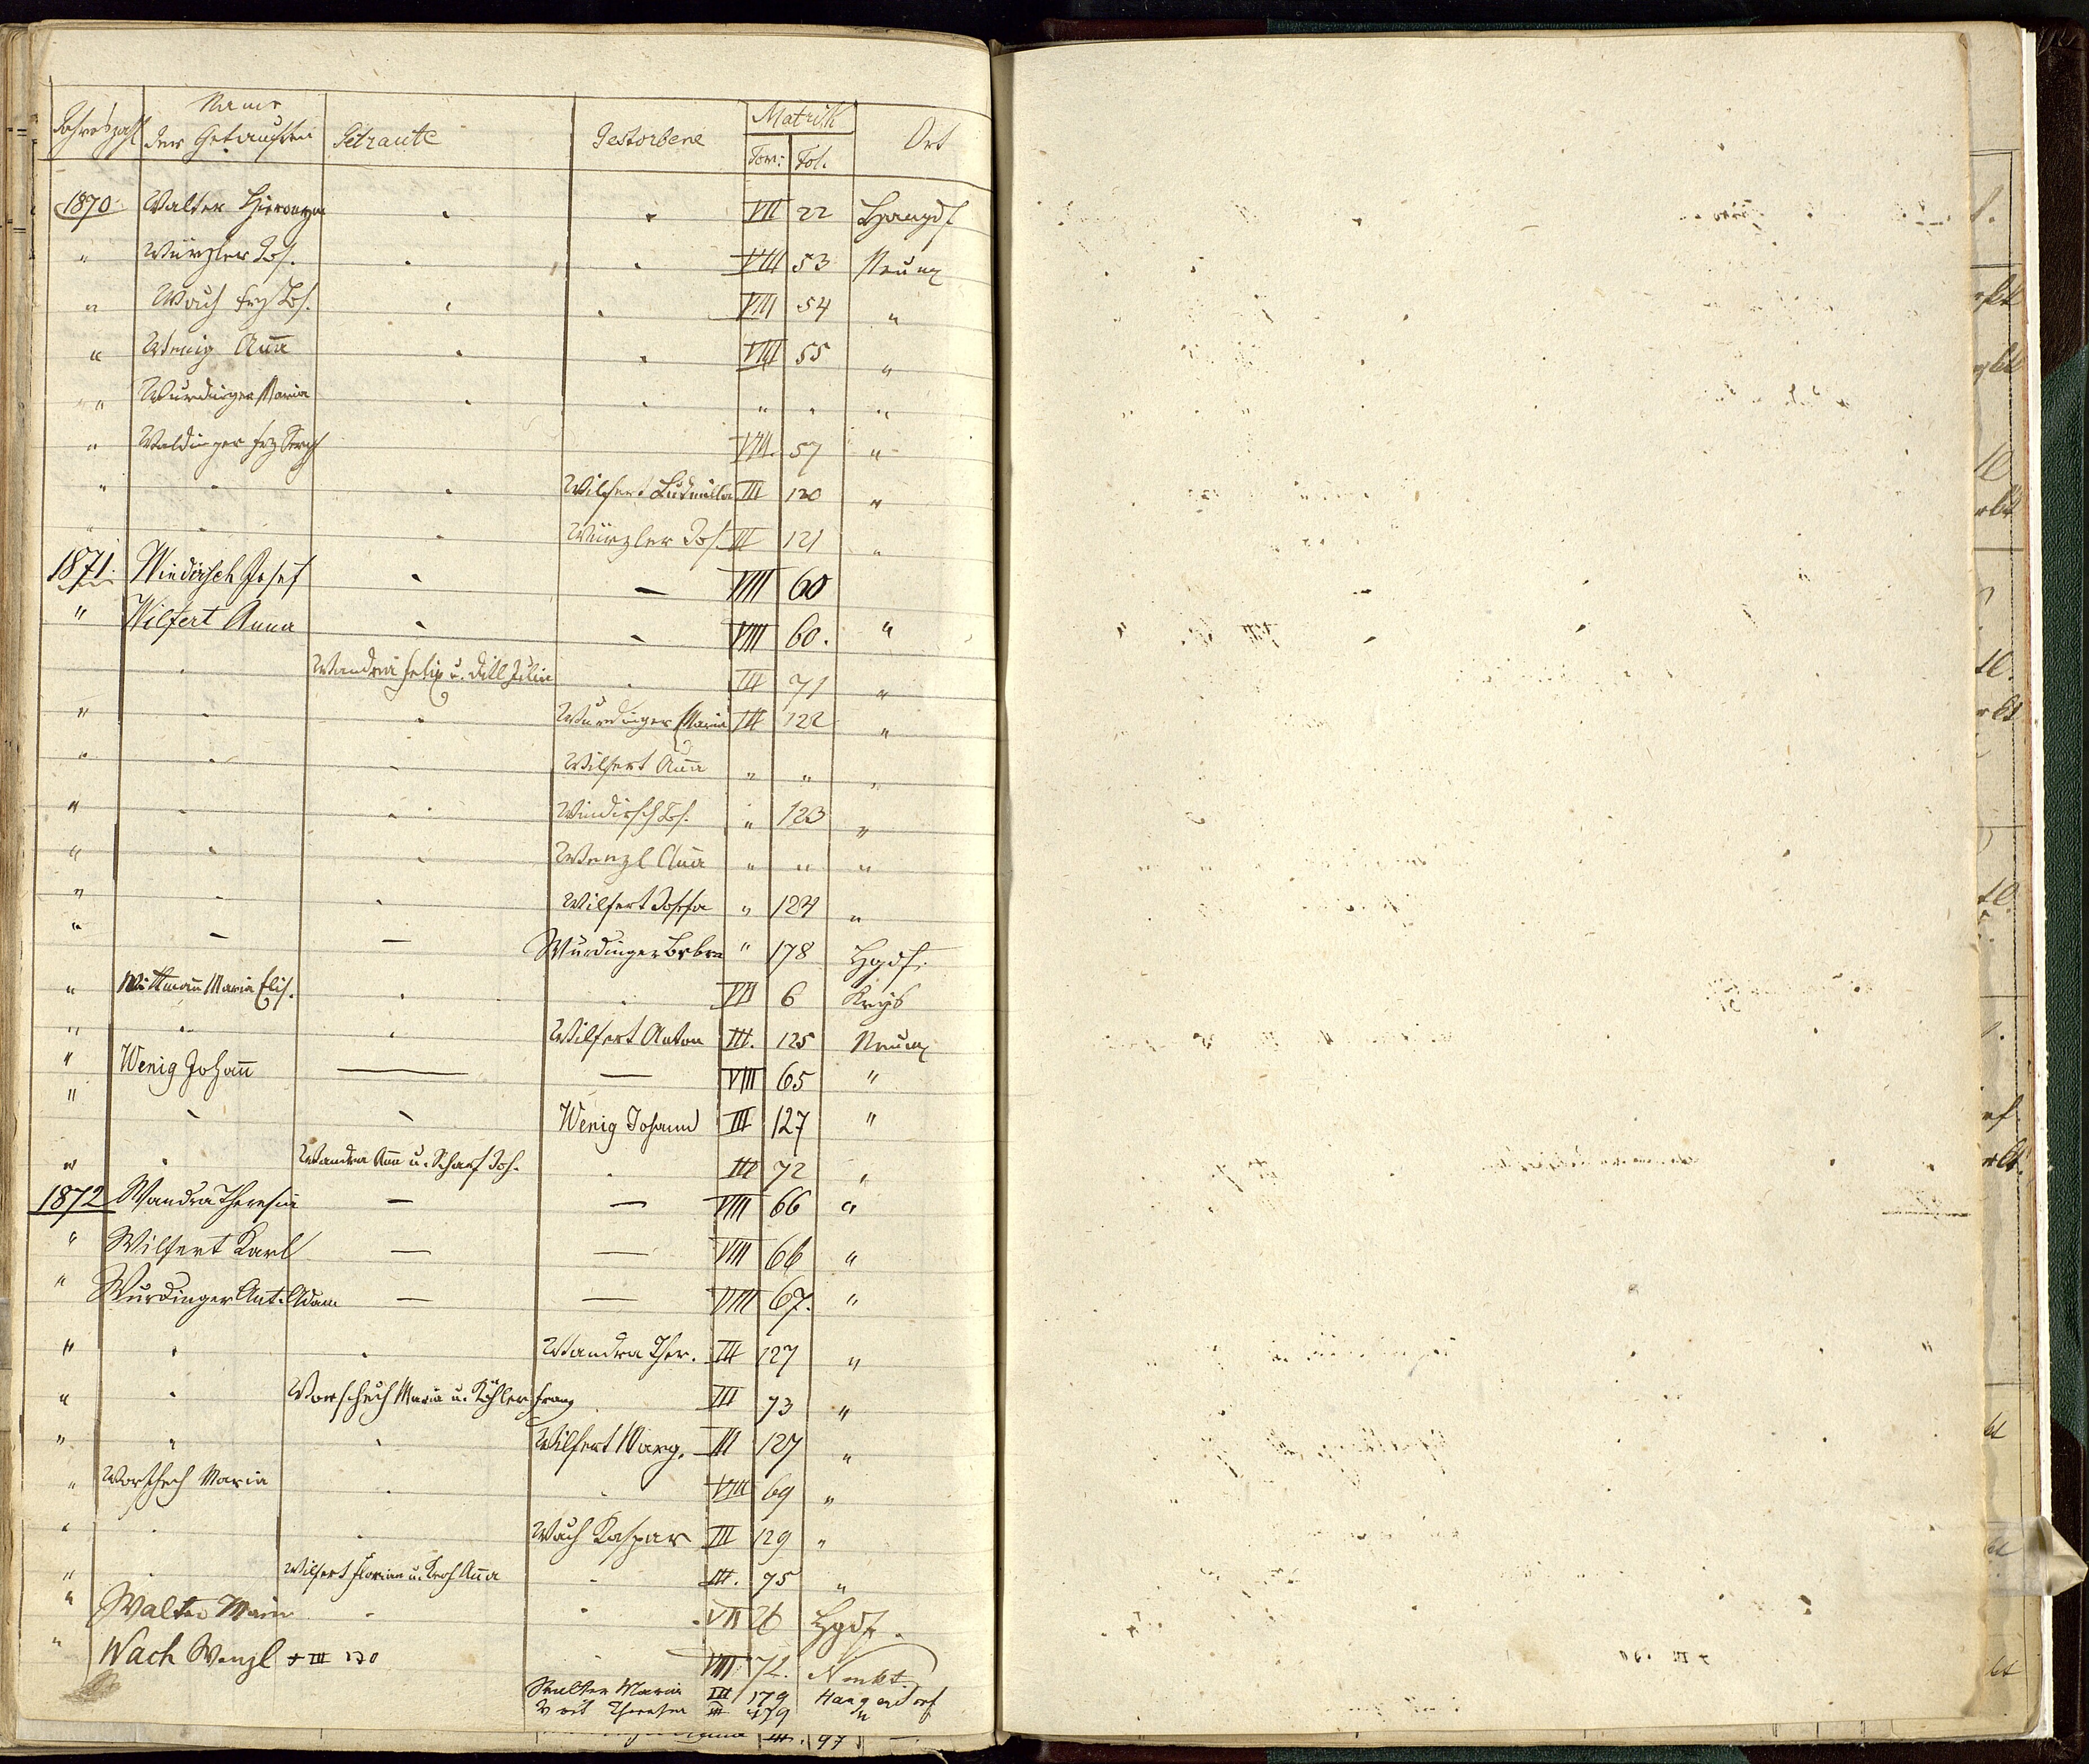 Jahreszahl Name der Getauften Getraute Gestorbene Matrik Tom: Fol. Ort
1870 Walter Hieronym " " VII 22 Hangdf
" Würzler Jos. " " VIII 53 Neumk
" Wach Frz Jos. " " VIII 54 "
" Wenig Anna " " VIII 55 "
" Wurdinger Maria " " " " "
" Waldinger Frz VIII. 57 "
" " " Wilfert Ludmilla III 120 "
" " " Würzler Jos. III 121 "
1871. Windirsch Josef " – VIII 60
" Wilfert Anna " " VIII 60. "
" Wandra Felix u. Dill Julia " III 71 "
" " " Wurdinger Maria III 122 "
" " " Wilfert Anna " " "
" " " Windirsch Jos. " 123 "
" " " Wenzl Anna " " "
" " " Wilfert Josefa " 124 "
" – – Wurdinger Brbra " 178 Hgdf.
" Wittmann Maria Elis. " " VII 6
" " " Wilfert Anton III. 125 Neumk
" Wenig Johann — — VIII 65 "
" " " Wenig Johann III 127 "
" " Wandra Anna u. Scharf Joh. " III 72 "
1872 Wandra Theresia – – VIII 66 "
" Wilfert Karl — — VIII 66 "
" Wurdinger Ant. Adam — — VIII 67. "
" " " Wandra Ther. III 127 "
" " Worschech Maria u. Köhler Franz III 73 "
" " " Wilfert Marg. III 127 "
" Worschech Maria " " VIII 69 "
" " " Wach Kaspar III 129 "
" " Wilfert Florian u. Kroh Anna " III. 75 "
" Walter Maria " " VII 26 Hgdf.
" Wach Wenzl + III 130 VIII 72. Nmkt.
Walter Maria III 179 Hangendorf
Voit Theresia III 179 "
III. 97